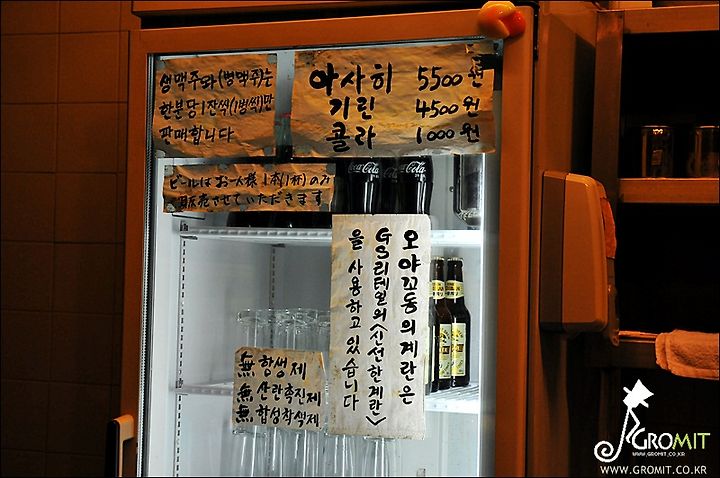 생맥주와(병맥주)는
한분당1잔씩(1병씩)만
판매합니다
아사히 5500원
기린 4500원
콜라 1000원
ビールはお一人様1本(1杯)のみ
販売させていただきます
오야꼬동의계란은
GS리테일의<신선한계란>
을 사용하고있습니다
無항생제
無산란촉진제
無합성착색제
Coca-Cola
Coca-Cola
GROMIT
WWW.GROMIT.CO.KR
WWW.GROMIT.CO.KR